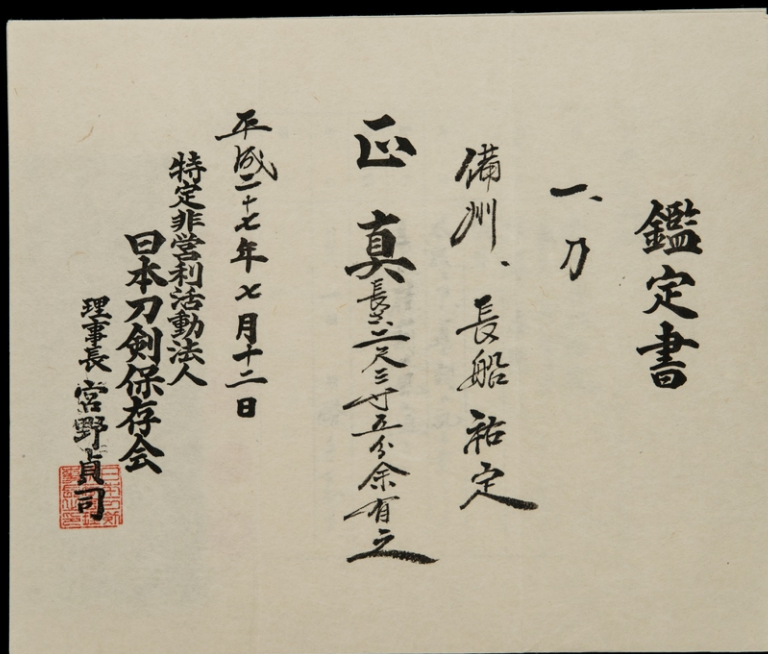 鑑定書
一、刀
備州、長船祐定
正真 長さ二尺三寸五分余有之
平成二十七年七月十二日
特定非営利活動法人
日本刀剣保存会
理事長 宮野貞司